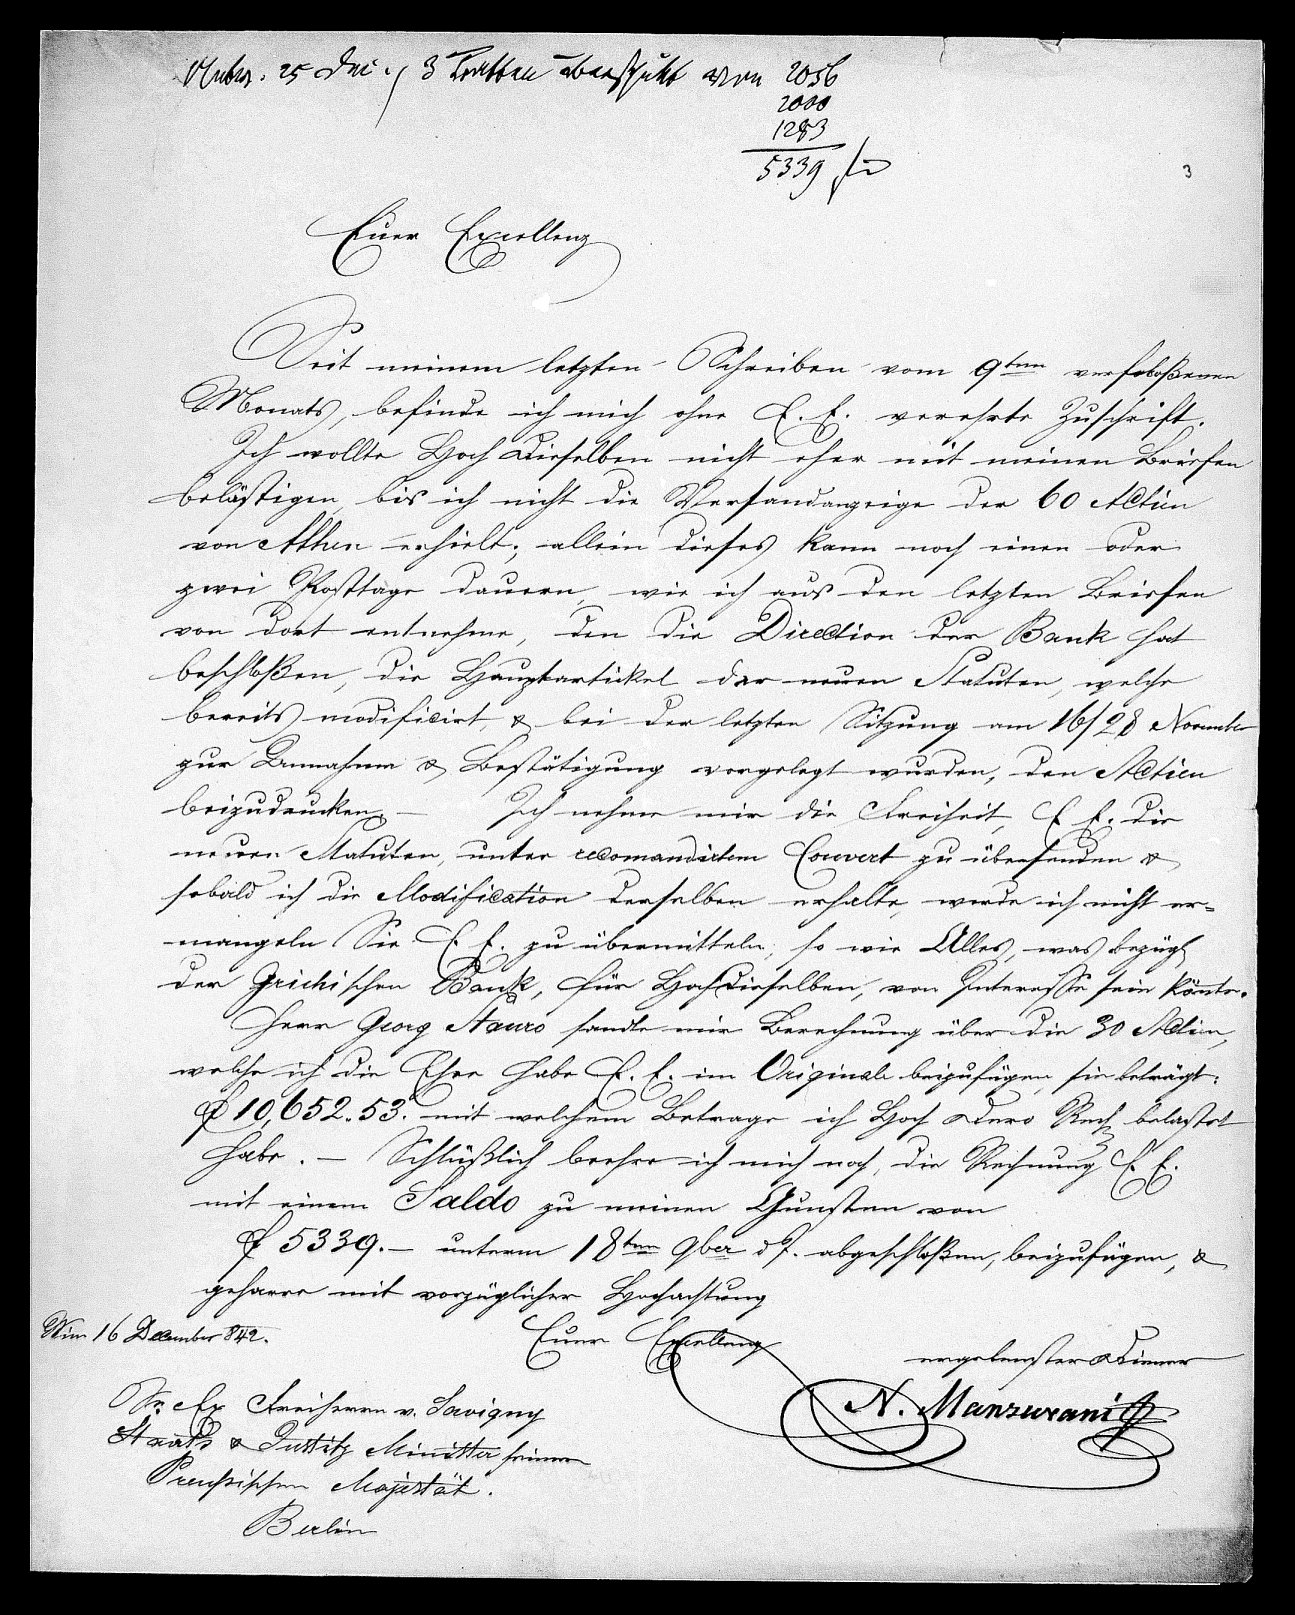 25 Dec. 3 Tratten überschickt von 2056
2000
1283
5339
3
Euer Excellenz
Seit meinem letzten Schreiben vom 9ten verfloßenen
Monats, befinde ich mich ohne E. E. verehrte Zuschrift.
Ich wollte Hoch Dieselben nicht eher mit meinen Briefen
belästigen, bis ich nicht die Versandanzeige der 60 Actien
von Athen erhielt; allein dieses kann noch einen oder
zwei Posttage dauern, wie ich aus den letzten Briefen
von dort entnehme, den die Direction der Bank hat
beschloßen, die Hauptartickel der neuen Statuten, welche
bereits modificirt, & bei der letzten Sitzung am 16/28 November
zur Annahme & Bestätigung vorgelegt wurden, den Actien
beizudrucken. — Ich nehme mir die Freiheit, E. E. die
neuen Statuten, unter recomandirtem Couvert zu übersenden &
sobald ich die Modification derselben erhalte, werde ich nicht er=
mangeln Sie E. E. zu übermitteln, so wie Alles, was bezügl
der Grichischen Bank, für Hochdieselben, von Interesse sein könnte.
Herr Georg Stauro sandte mir Berechnung über die 30 Actien,
welche ich die Ehre habe E. E. im Originale beizufügen, sie beträgt:
f 10,652.53. mit welchem Betrage ich Hoch Dero Rech belastet
habe. — Schlüßlich beehre ich mich noch, die Rechnung E. E.
mit einem Saldo zu meinen Gunsten von
f 5339.— unterm 18ten 9ber d J. abgeschloßen, beizufügen, &
geharre mit vorzüglicher Hochachtung
Wien 16 December 842.
Euer Excellenz
ergebenster Diener
N. Manzurani
Sr. Ex Freiherrn v. Savigny
Staats & Justitz Minister seiner
Preußischen Majestät.
Berlin